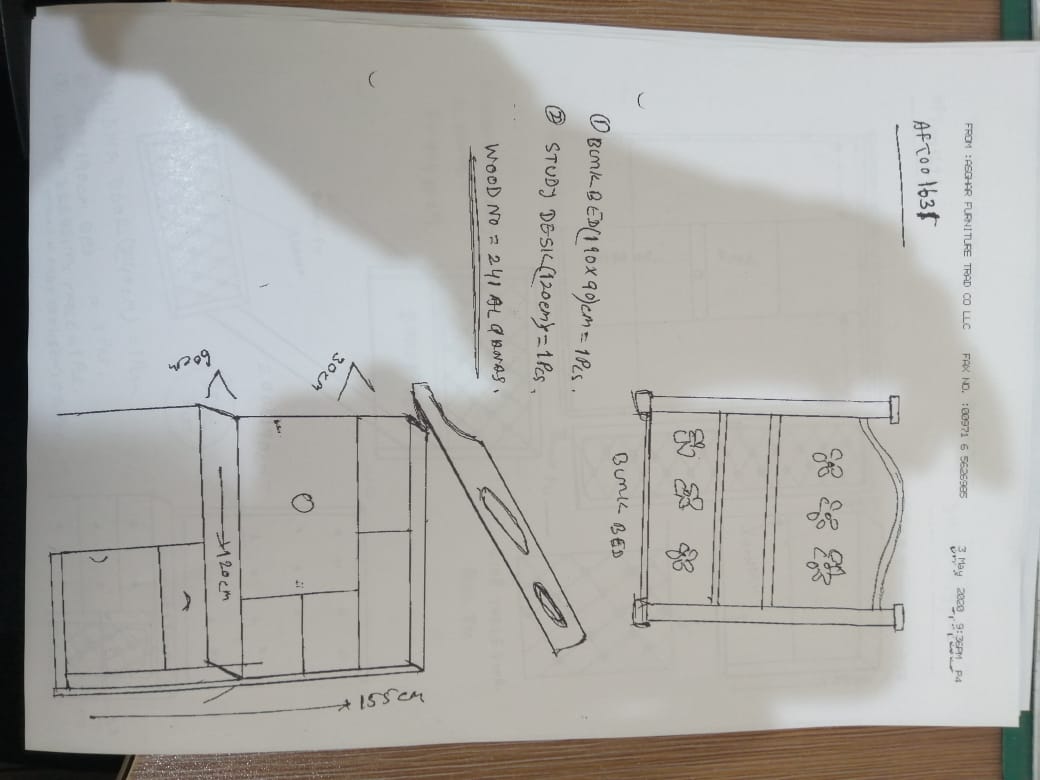 FROM : ASGHAR FURNITURE TRAD CO LLC FAX NO. : 00971 6 5626985 3 May 2020 9:36PM P4
AFT001631
BUNK BED
① BUNK BED (190x90)cm = 1Pcs.
② STUDY DESK (120cm) = 1Pcs,
WOOD NO = 241 AL
30cm
60cm
120cm
155cm